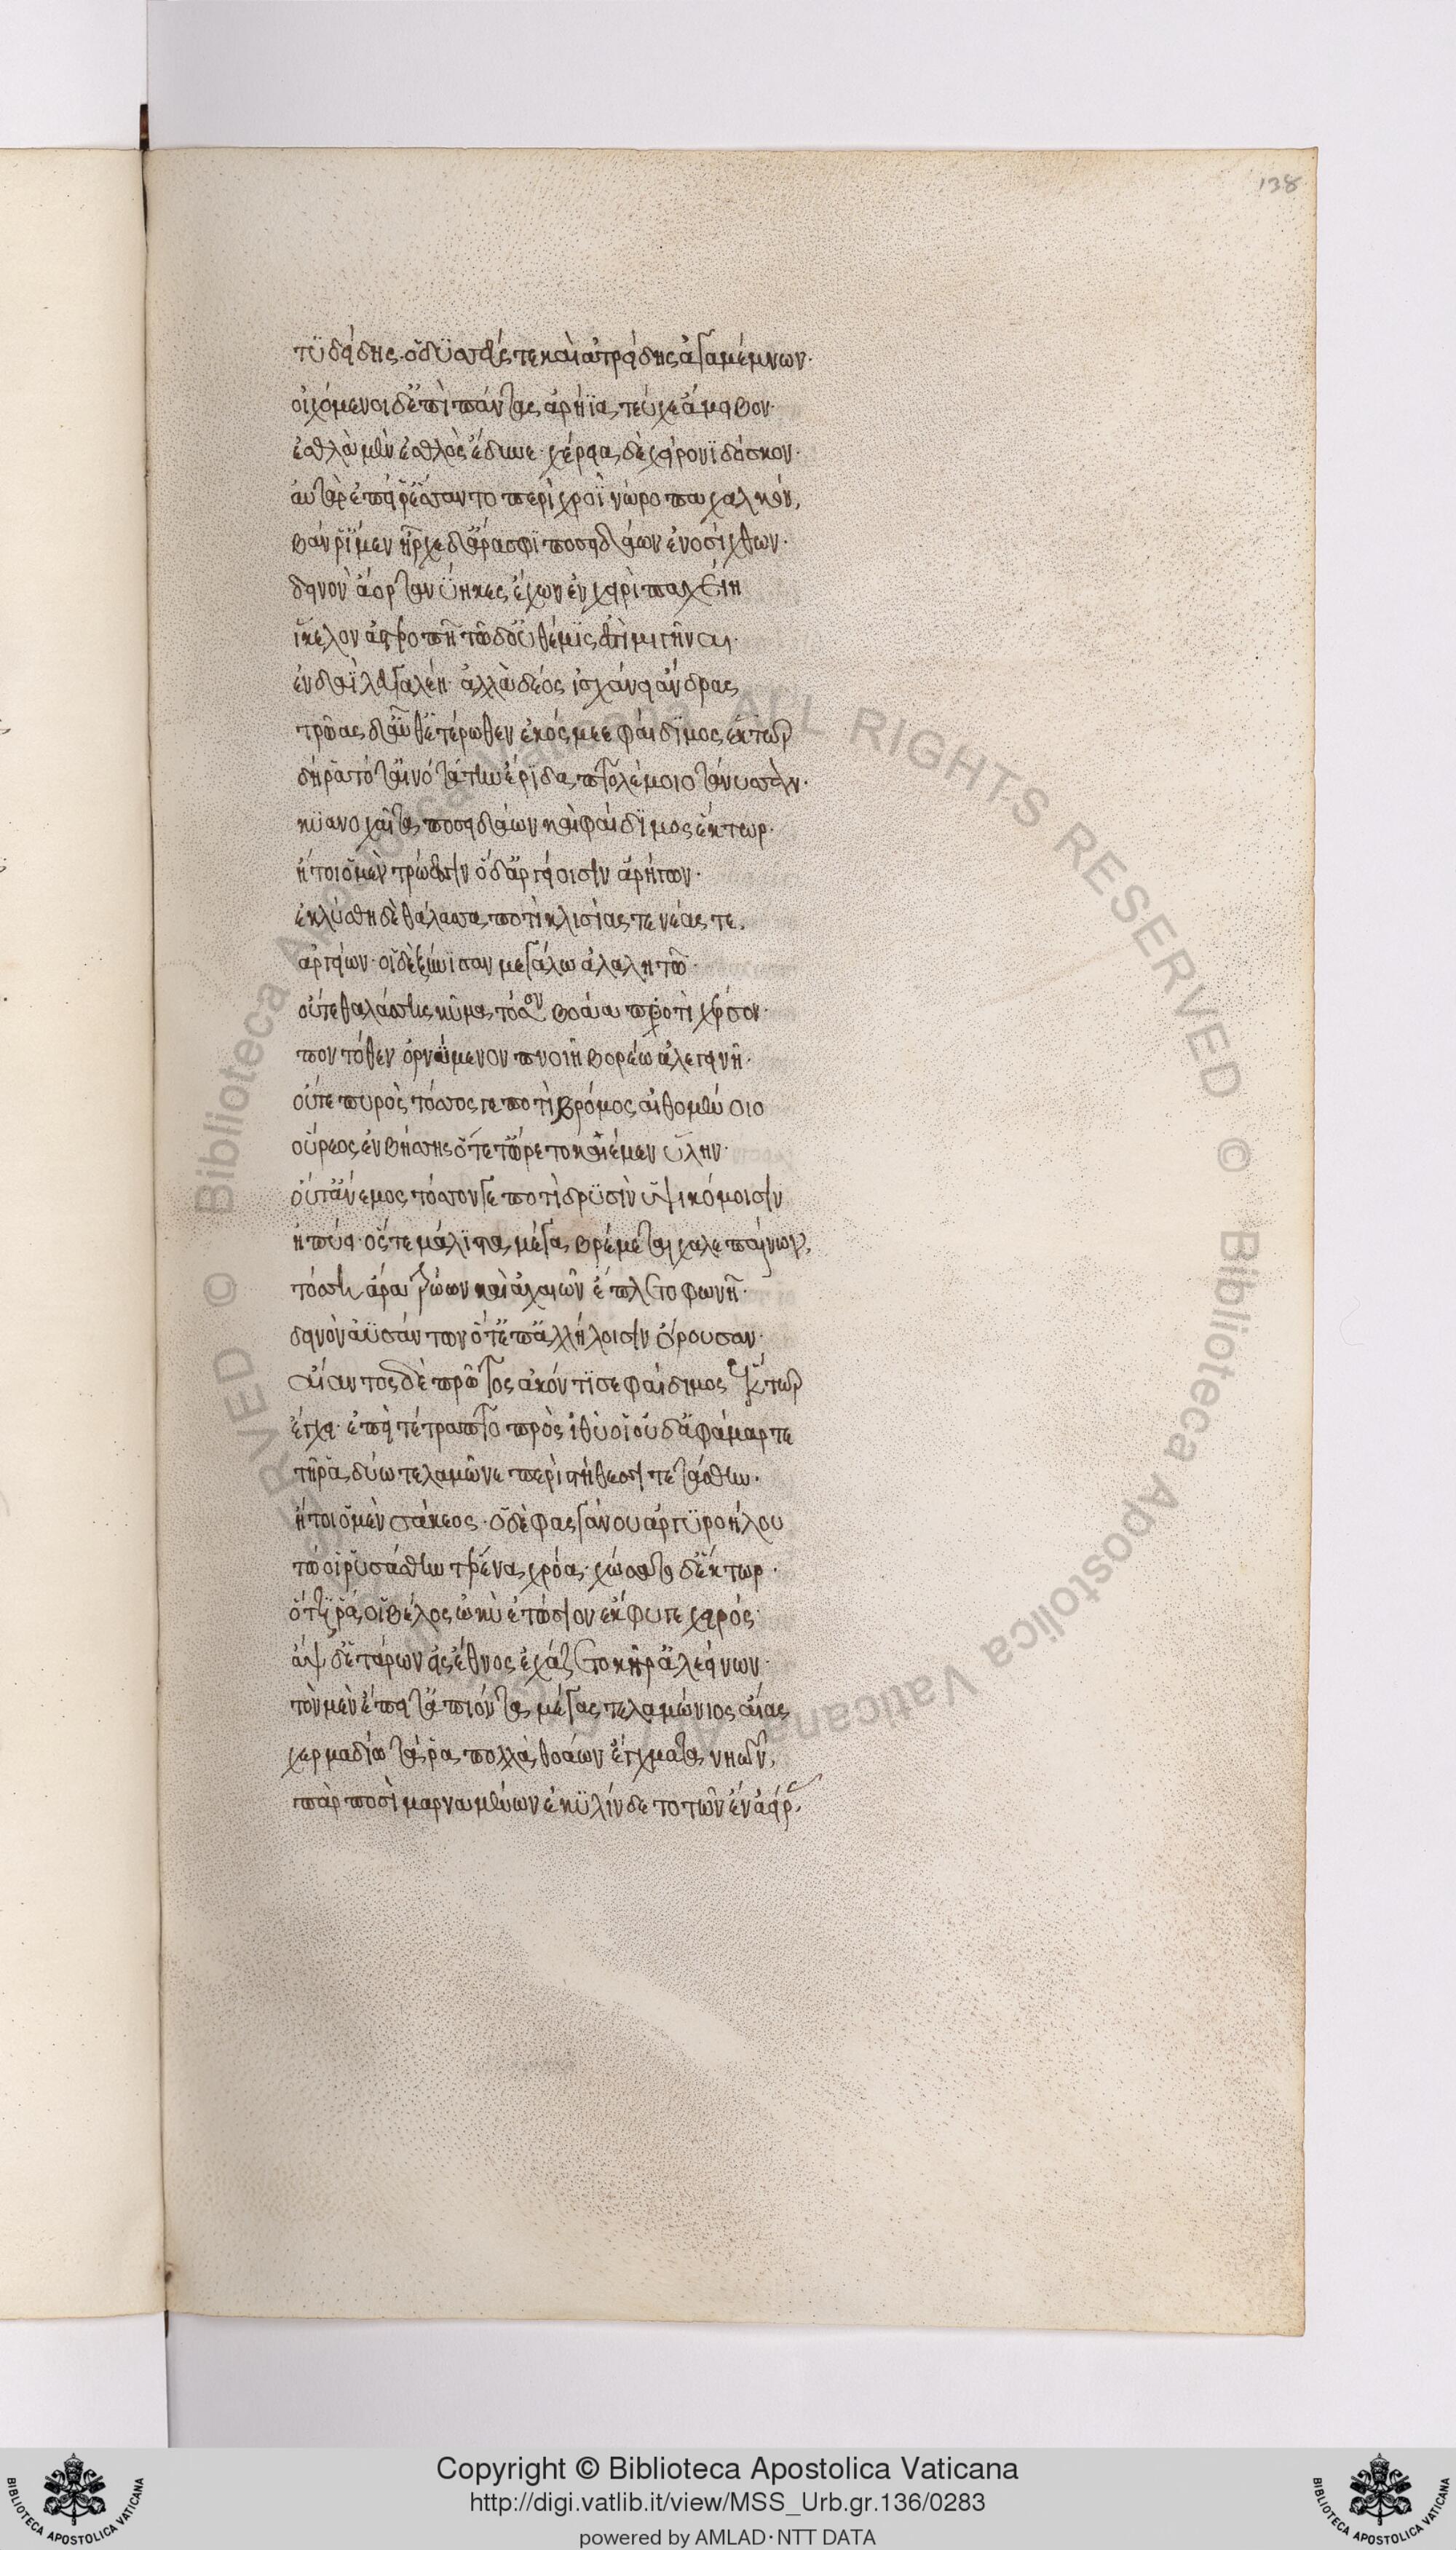 138
τϋδείδης· ὀδϋσσεύς τε καὶ ἀτρείδης ἀγαμέμνων·
οἰχόμενοι δ' ἐπὶ πάντας ἀρήϊα τεύχε' ἄμειβον·
ἐσθλὰ μὲν ἐσθλὸς ἔδυνε· χέρεια δὲ χείρονϊ δόσκον·
αὐτὰρ ἐπεί ῥ' ἕσσαντο περὶ χροῒ νώροπα χαλκόν,
βάν ῥ' ἴμεν ἦρχε δ' ἄρα σφϊ ποσειδάων ἐνοσίχθων·
δεινὸν ἄορ τανϋηκες ἔχων ἐν χειρὶ παχείη
ἴκελον ἀστεροπῆ τῶ δ' οὐ θέμϊς ἐστὶ μιγῆναι·
ἐν δαῒ λευγαλέη· ἀλλὰ δέος ἰσχάνει ἄνδρας
τρῶας δ' αὖθ' ἑτέρωθεν ἐκόσμεε φαίδϊμος ἕκτωρ
δή ῥα τότ' αἰνότάτην ἔρϊδα πτολέμοιο τάνυσσαν·
κϋανοχαῖτα ποσειδάων καὶ φαίδϊμος ἕκτωρ·
ἤτοι ὃ μὲν τρώεσσιν ὃ δ' ἀργείοισιν ἀρήγων·
ἐκλύσθη δὲ θάλασσα ποτὶ κλισίας τε νέας τε,
ἀργείων· οἳ δὲ ξύνισαν μεγάλω ἀλαλητῶ·
οὔτε θαλάσσης κῦμα τόσον βοάα προτὶ χέρσον·
ποντόθεν ὀρνύμενον πνοιῆ βορέω ἀλεγεινῆ·
οὔτε πυρὸς τόσσος γε ποτὶ βρόμος αἰθομένοιο
οὔρεος ἐν βήσσης ὅτε τ' ὤρετο καιέμεν ὕλην·
οὔτ' ἄνεμος τόσσον γε ποτὶ δρϋσὶν ὑψικόμοισιν
ἠπύει· ὅς τε μάλϊστα μέγα βρέμεται χαλεπαίνων,
τόσση ἄρα τρώων καὶ ἀχαιῶν ἔπλετο φωνῆ·
δεινὸν ἀϋσάντων ὅτ' ἐπ' ἀλλήλοισιν ὄρουσαν·
αἴαντος δὲ πρῶτος ἀκόντϊσε φαίδιμος ἕκτωρ
ἔγχει· ἐπεὶ τέτραπτο πρὸς ἰθὺ οἱ οὐδ' ἀφάμαρτε
τῆ ῥα δύω τελαμῶνε περὶ στήθεσσι τετάσθην·
ἤτοι ὃ μὲν σάκεος· ὃ δὲ φασγάνου ἀργϋροήλου
τώ οἱ ῥυσάσθην τέρενα χρόα· χώσατο δ' ἕκτωρ·
ὅττι ῥά οἱ βέλος ὠκὺ ἐτώσιον ἔκφυγε χειρός·
ἂψ δ' ἑτάρων εἰς ἔθνος ἐχάζετο κῆρ' ἀλεείνων·
τὸν μὲν ἔπειτ' ἀπιόντα μέγας τελαμώνιος αἴας
χερμαδίω τά ῥα πολλὰ θοάων ἔχματα νηῶν,
πὰρ ποσὶ μαρναμένων ἐκϋλίνδετο τῶν ἓν ἀείρ
Copyright © Biblioteca Apostolica Vaticana
http://digi.vatlib.it/view/MSS_Urb.gr.136/0283
powered by AMLAD·NTT DATA